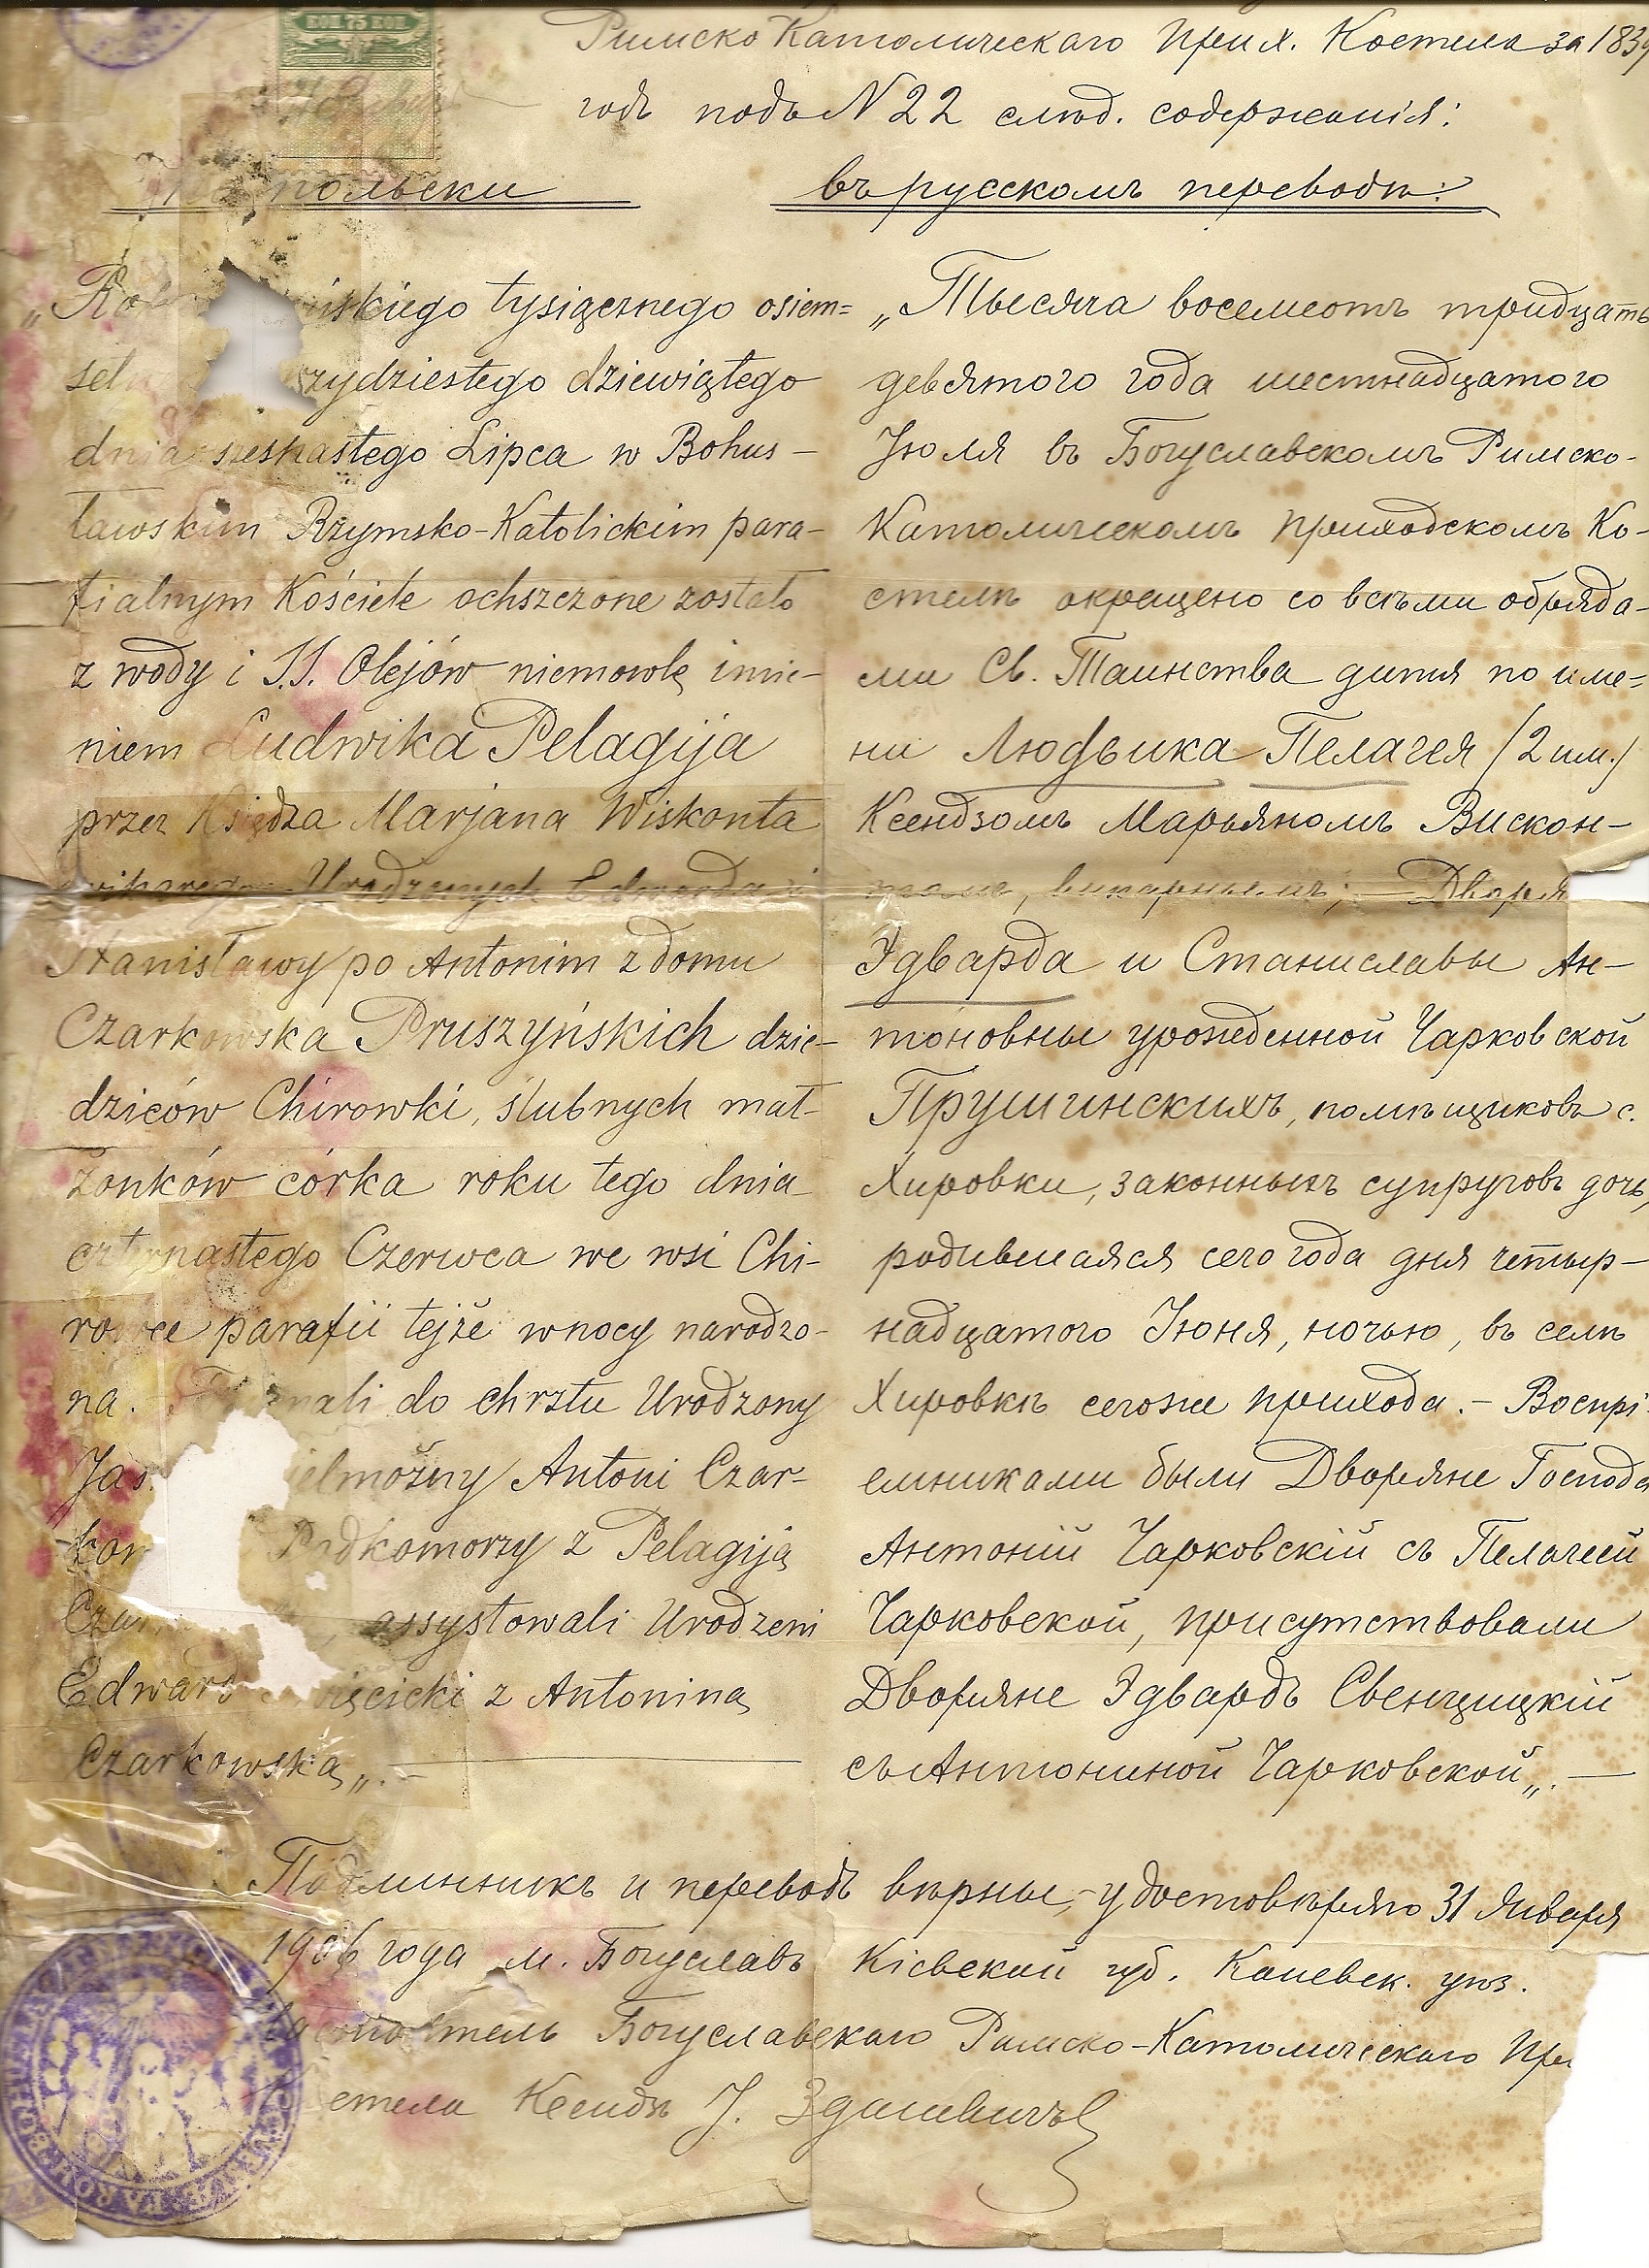 КОП 75 КОП
Римско Католическаго Прих. Костела за 1839
годъ подъ N 22 слѣд. содержанія:
польски
въ русскомъ переводѣ:
skiego tysiącznego osiem=
set zydziestego dziewiątego
dnia szesnastego Lipca w Bohus-
ławskim Rzymsko-Katolickim para-
fialnym Kościele ochszczone zostało
z wody i S.S. Olejów niemowlę imie-
niem Ludwika Pelagija
przez Księdza Marjana Wiskonta
wikarego Urodzonych Edwarda i
Stanisławy po Antonim z domu
Czarkowska Pruszyńskich dzie-
dziców Chirowki, ślubnych mał-
żonków córka roku tego dnia
czternastego Czerwca we wsi Chi-
rowce parafii tejże w nocy narodzo-
na. do chrztu Urodzony
Jaś ielmożny Antoni Czar-
kow Podkomorzy z Pelagiją
Czar assystowali Urodzeni
Edward więcicki z Antoniną
Czarkowską„.-
„Тысяча восемсотъ тридцать
девятого года шестнадцатого
Іюля въ Богуславскомъ Римско-
Католическомъ приходскомъ Ко-
стелѣ окрещено со всѣми обряда-
ми Св. Таинства дитя по име=
ни Людвика Пелагея /2 им./
Ксендзомъ Марьяномъ Вискон-
томъ, викарнымъ; - Дворя
Эдварда и Станиславы Ан-
тоновны урожденной Чарковской
Прушинскихъ, помѣщиковъ с.
Хировки, законныхъ супруговъ дочь,
родившаяся сего года дня четыр-
надцатого Іюня, ночью, въ селѣ
Хировкѣ сегоже прихода. - Воспрі
емниками были Дворяне Господа
Антоній Чарковскій съ Пелагеей
Чарковской, присутствовали
Дворяне Эдвардъ Свенцицкій
съ Антониной Чарковской„.-
Подлинникъ и переводъ вѣрны, - удостовѣряю 31 Января
1906 года м. Богуславъ Кіевской губ. Каневск. уѣз.
Настоятель Богуславскаго Римско-Католическаго При
стела Ксендзъ І. Здановичъ